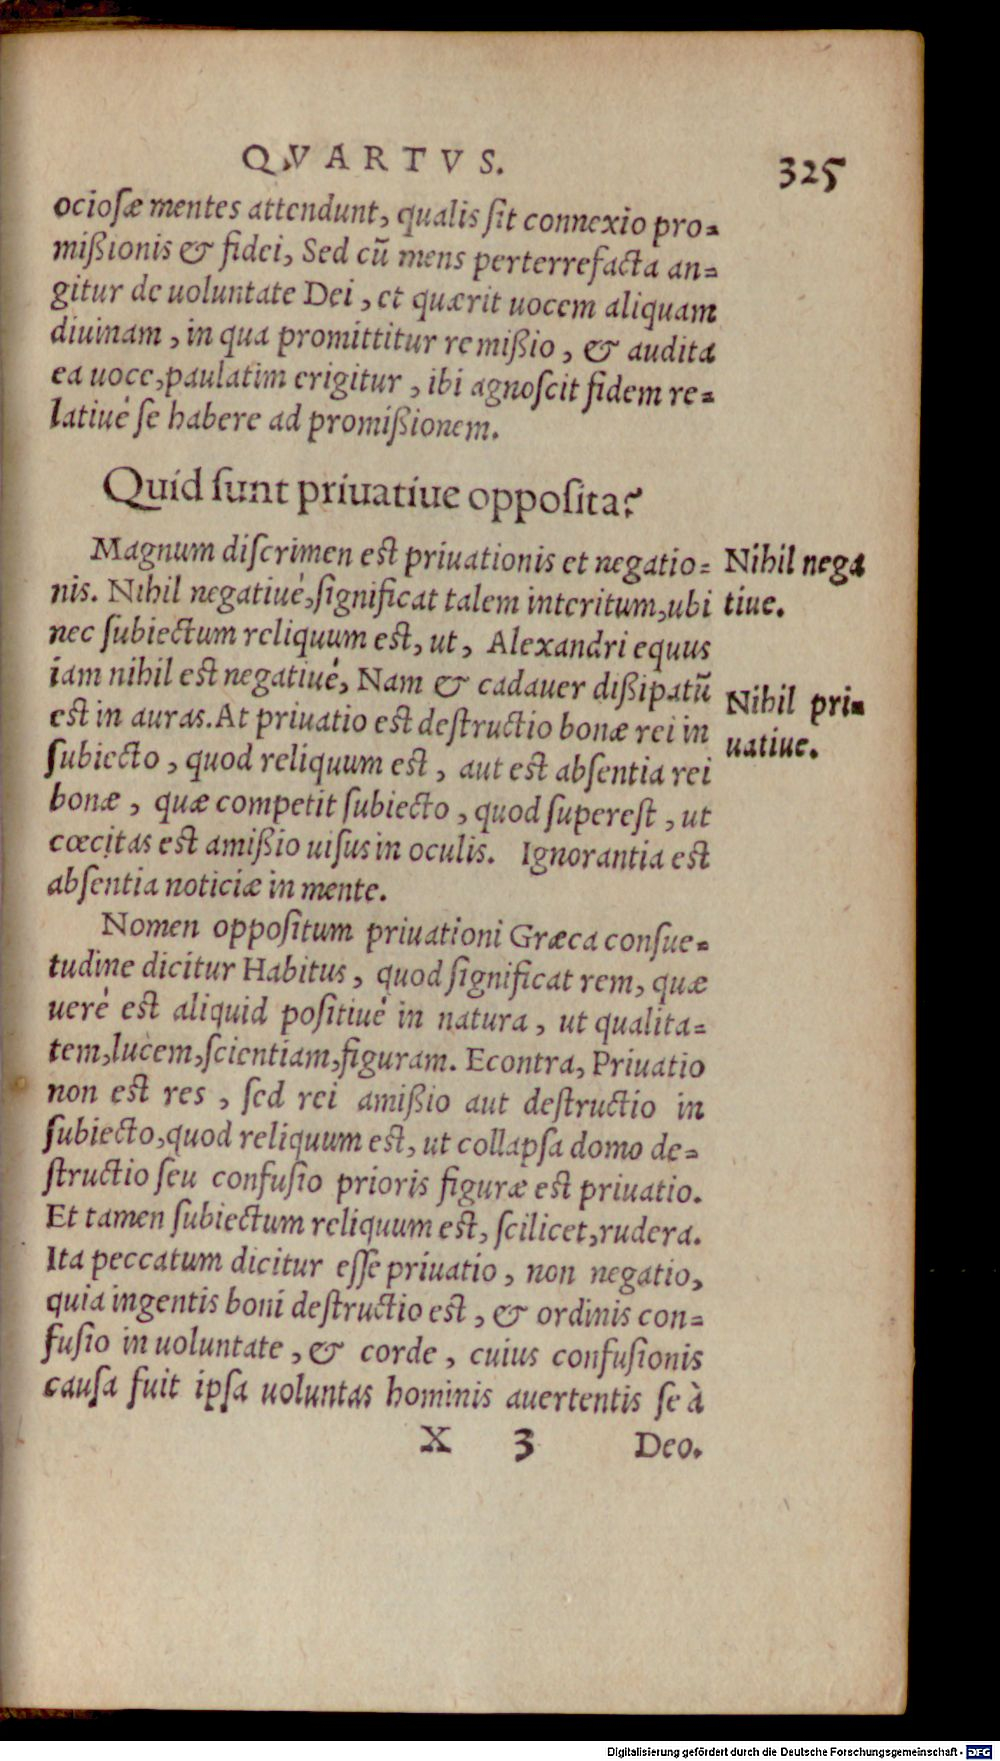 QVARTVS.
325
ociosæ mentes attendunt, qualis ſit connexio pro=
mißionis & fidei, Sed cū mens perterrefacta an=
gitur de uoluntate Dei, et quærit uocem aliquam
diuinam, in qua promittitur remißio, & audita
ea uoce, paulatim erigitur, ibi agnoſcit fidem re=
latiué ſe habere ad promißionem.
Quid ſunt priuatiue oppoſita?
Magnum diſcrimen eſt priuationis et negatio=
nis. Nihil negatiué, ſignificat talem interitum, ubi
nec ſubiectum reliquum eſt, ut, Alexandri equus
iam nihil eſt negatiué, Nam & cadauer dißipatū
eſt in auras. At priuatio eſt deſtructio bonæ rei in
ſubiecto, quod reliquum eſt, aut eſt abſentia rei
bonæ, quæ competit ſubiecto, quod ſupereſt, ut
cœcitas eſt amißio uiſus in oculis. Ignorantia eſt
abſentia noticiæ in mente.
Nihil nega
tiue.
Nihil pri=
uatiue.
Nomen oppoſitum priuationi Græca conſue=
tudine dicitur Habitus, quod ſignificat rem, quæ
ueré eſt aliquid poſitiué in natura, ut qualita=
tem, lucem, ſcientiam, figuram. Econtra, Priuatio
non eſt res, ſed rei amißio aut deſtructio in
ſubiecto, quod reliquum eſt, ut collapſa domo de=
ſtructio ſeu confuſio prioris figuræ eſt priuatio.
Et tamen ſubiectum reliquum eſt, ſcilicet, rudera.
Ita peccatum dicitur eſſe priuatio, non negatio,
quia ingentis boni deſtructio eſt, & ordinis con=
fuſio in uoluntate, & corde, cuius confuſionis
cauſa fuit ipſa uoluntas hominis auertentis ſe à
X 3 Deo.
Digitalisierung gefördert durch die Deutsche Forschungsgemeinschaft - DFG